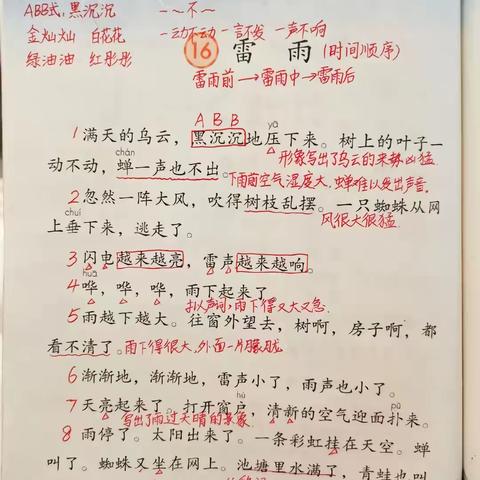 ABB式:黑沉沉 一~不~
金灿灿 白花花 一动不动 一言不发 一声不响
绿油油 红彤彤 16 雷雨 (时间顺序)
雷雨前→雷雨中→雷雨后
A B B
yā
1 满天的乌云,黑沉沉地压下来。树上的叶子一
chán 形象写出了乌云的来势凶猛
动不动,蝉一声也不出。下雨前空气湿度大,蝉难以发出声音.
2 忽然一阵大风,吹得树枝乱摆。一只蜘蛛从网
chuí 风很大很猛
上垂下来,逃走了。
3 闪电越来越亮,雷声越来越响。
huā
4 哗,哗,哗,雨下起来了。
拟声词,雨下得又大又急.
5 雨越下越大。往窗外望去,树啊,房子啊,都
看不清了。雨下得很大,外面一片朦胧
6 渐渐地,渐渐地,雷声小了,雨声也小了。
hù pū
7 天亮起来了。打开窗户,清新的空气迎面扑来。
写出了雨过天晴的景象.
8 雨停了。太阳出来了。一条彩虹挂在天空。蝉
叫了。蜘蛛又坐在网上。池塘里水满了,青蛙也叫